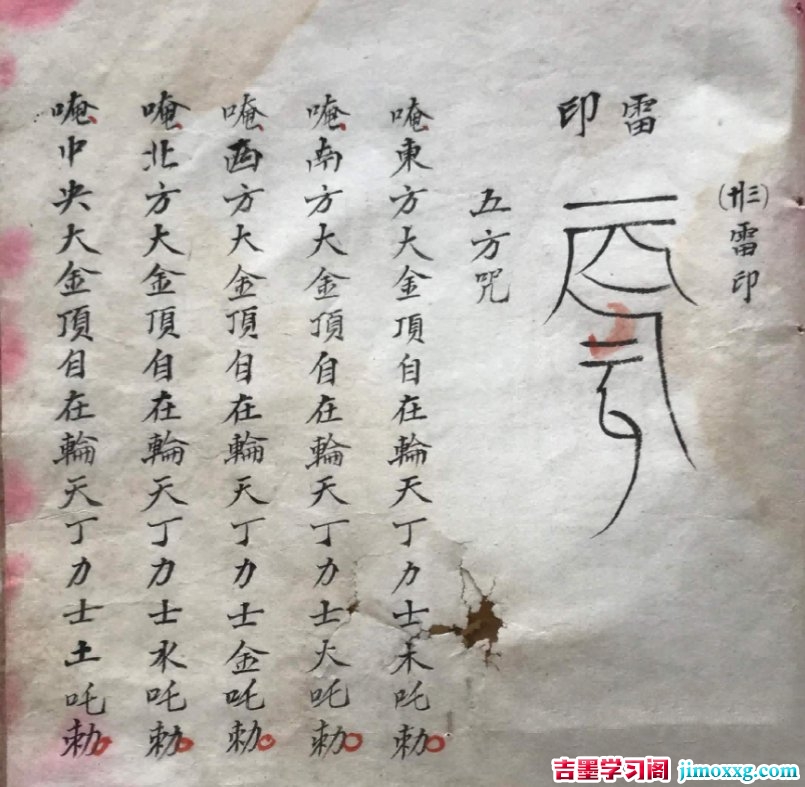 雷印
雷印
五方咒
唵東方大金頂自在輪天丁力士木吒勅
唵南方大金頂自在輪天丁力士火吒勅
唵西方大金頂自在輪天丁力士金吒勅
唵北方大金頂自在輪天丁力士水吒勅
唵中央大金頂自在輪天丁力士土吒勅
吉墨学习阁 jimoxxg.com